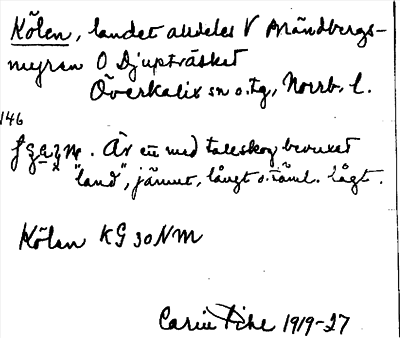 Kölen, landet alldeles V Brändbergs-
myran O Djupträsket
Överkalix sn o. tg, Norrb. l.
146
. Är en med tallskog bevuxet
"land", jämnt, långt o. täml. lågt.
Kölen KG 30 NM
Carin Pihl 1919-27